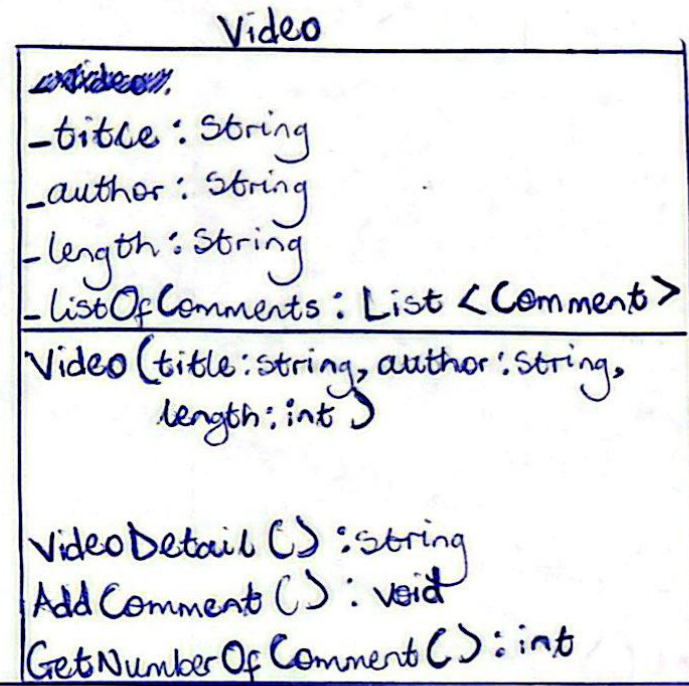 Video
_title : String
_author : String
_length : String
_listOfComments : List <Comment>
Video (title : string, author : string,
length : int )
VideoDetail () : string
AddComment () : void
GetNumberOfComment () : int